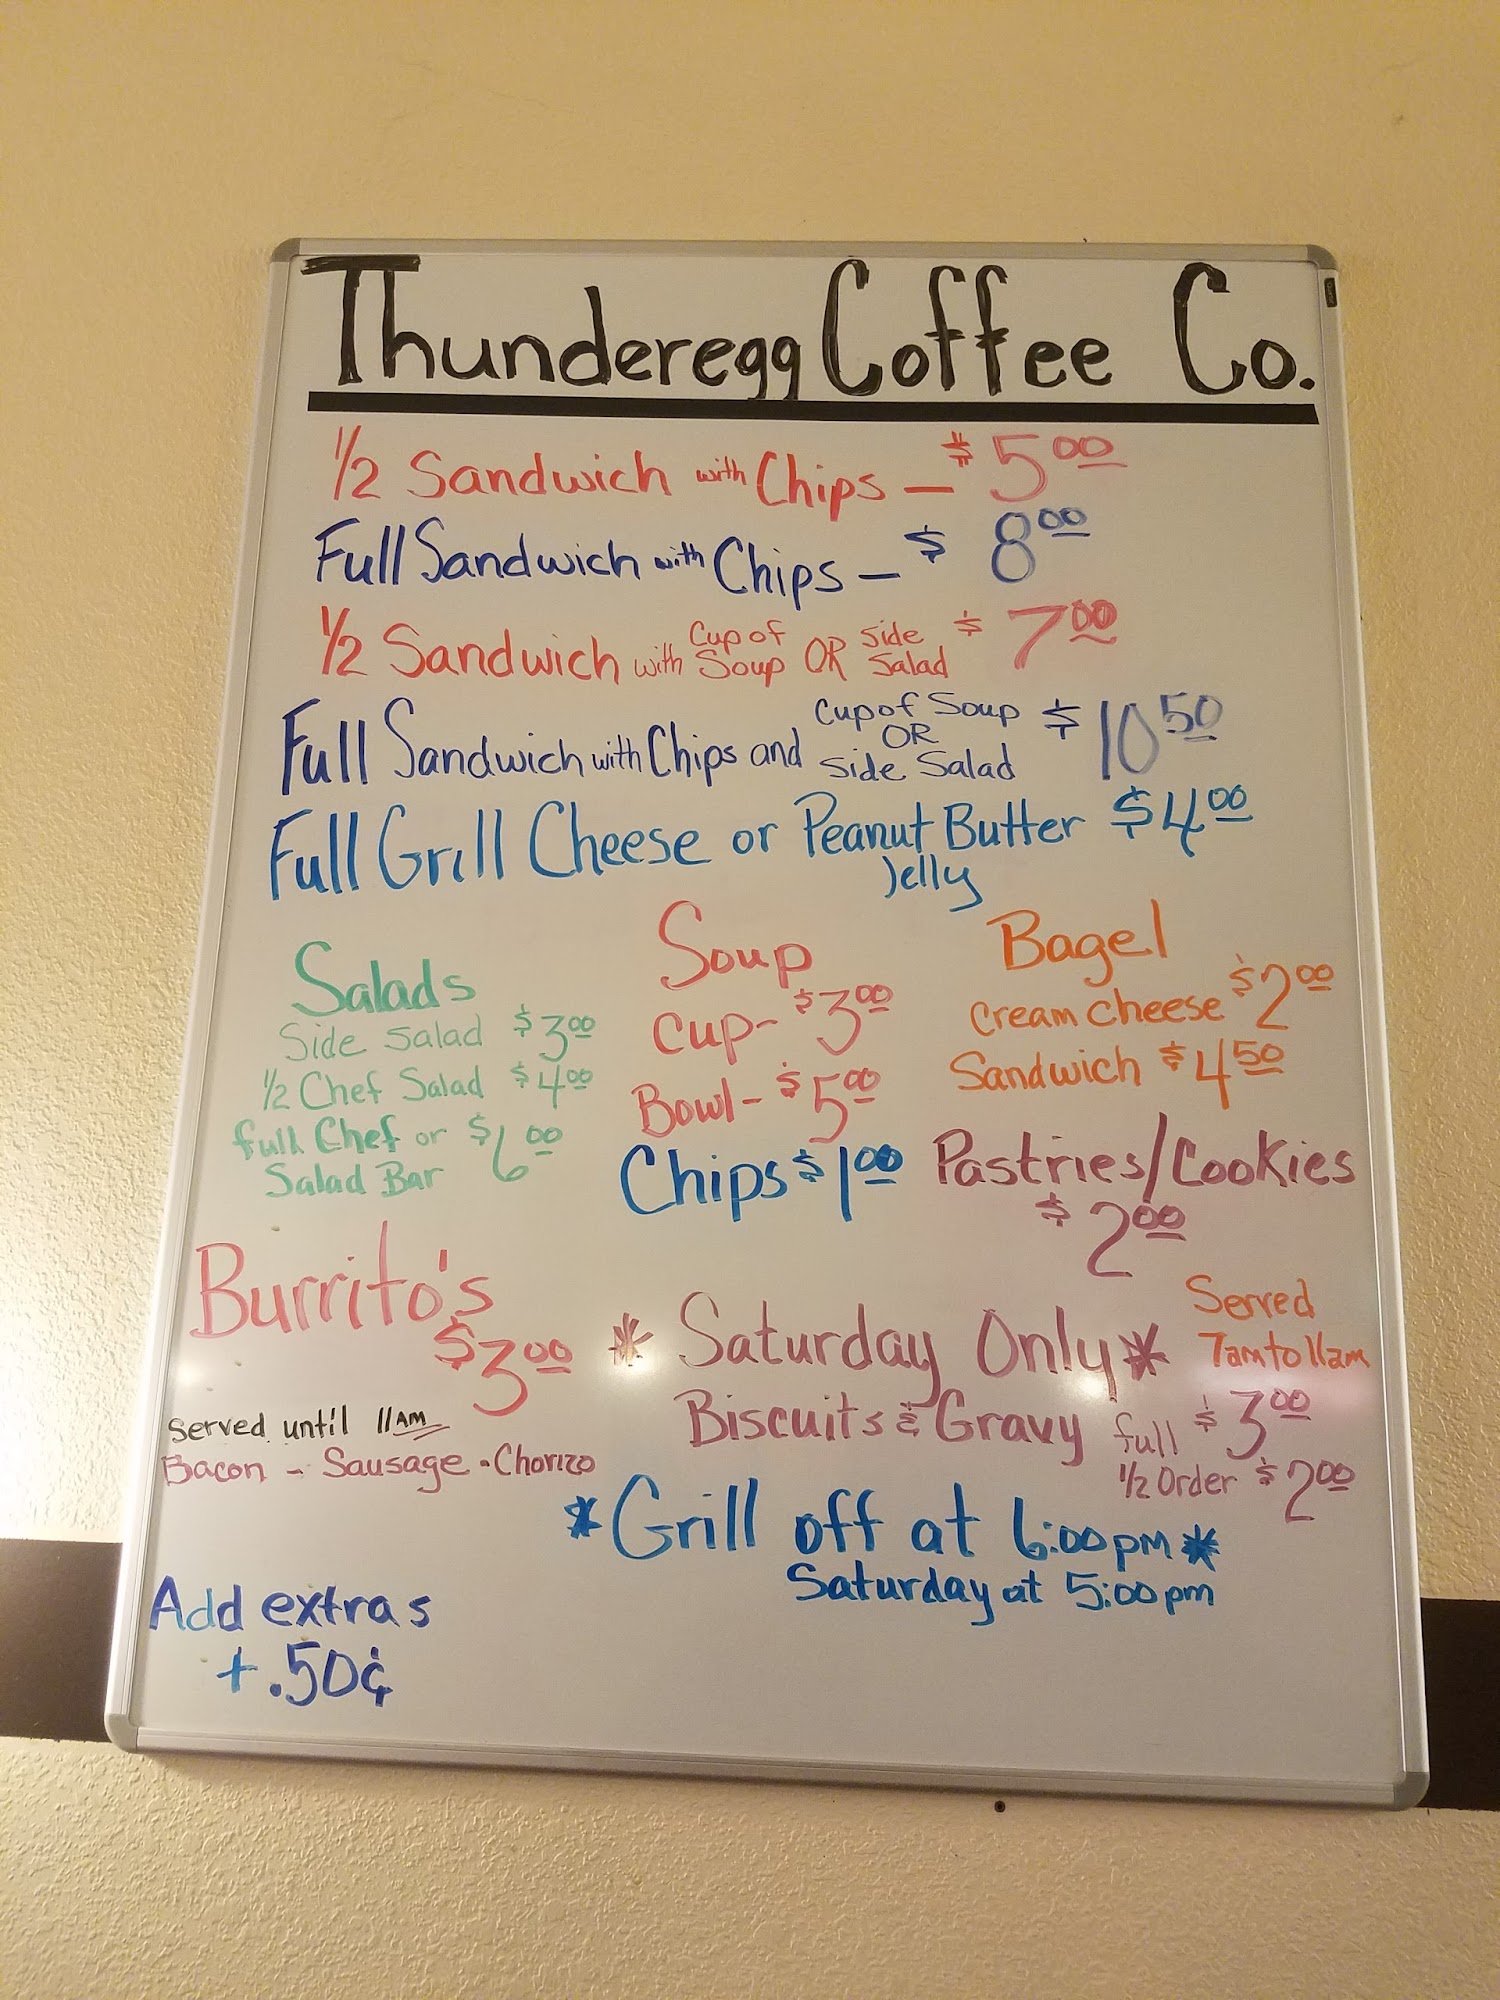 Thunderegg Coffee Co.
1/2 Sandwich with Chips - $5.00
Full Sandwich with Chips - $8.00
1/2 Sandwich with Cup of Soup OR Side Salad $7.00
Full Sandwich with Chips and Cup of Soup OR Side Salad $10.50
Full Grill Cheese or Peanut Butter Jelly $4.00
Salads
Side Salad $3.00
1/2 Chef Salad $4.00
Full Chef or Salad Bar $6.00
Soup
Cup- $3.00
Bowl- $5.00
Chips $1.00
Bagel
Cream Cheese $2.00
Sandwich $4.50
Pastries/Cookies
$2.00
Burrito's
$3.00
Served until 11AM
Bacon - Sausage - Chorizo
* Saturday Only *
Served
7am to 11am
Biscuits & Gravy full $3.00
1/2 Order $2.00
*Grill off at 6:00pm*
Saturday at 5:00pm
Add extras
+ .50¢